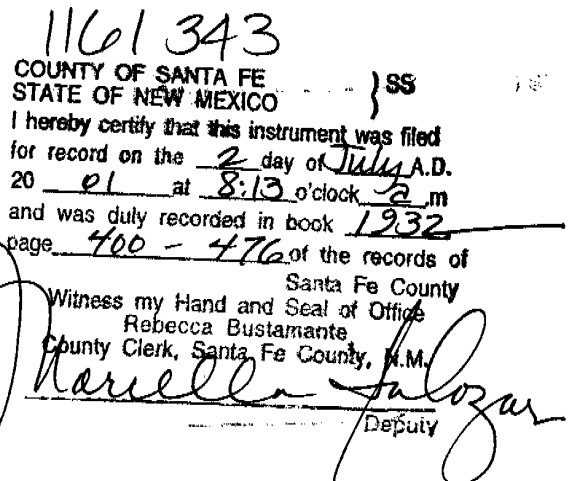 1161343
COUNTY OF SANTA FE } SS
STATE OF NEW MEXICO
I hereby certify that this instrument was filed
for record on the 2 day of July A.D.
20 01 at 8:13 o'clock a.m
and was duly recorded in book 1932
page 400 - 476 of the records of
Santa Fe County
Witness my Hand and Seal of Office
Rebecca Bustamante
County Clerk, Santa Fe County, N.M.
Mariella Salazar
Deputy